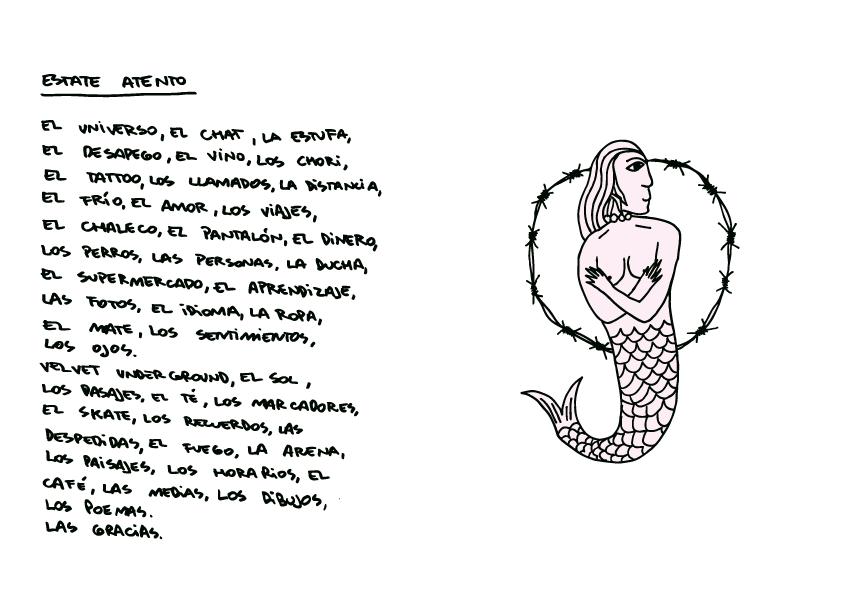 ESTATE ATENTO
EL UNIVERSO, EL CHAT, LA ESTUFA,
EL DESAPEGO, EL VINO, LOS CHORI,
EL TATTOO, LOS LLAMADOS, LA DISTANCIA,
EL FRÍO, EL AMOR, LOS VIAJES,
EL CHALECO, EL PANTALÓN, EL DINERO,
LOS PERROS, LAS PERSONAS, LA DUCHA,
EL SUPERMERCADO, EL APRENDIZAJE,
LAS FOTOS, EL IDIOMA, LA ROPA,
EL MATE, LOS SENTIMIENTOS,
LOS OJOS.
VELVET UNDERGROUND, EL SOL,
LOS PASAJES, EL TÉ, LOS MARCADORES,
EL SKATE, LOS RECUERDOS, LAS
DESPEDIDAS, EL FUEGO, LA ARENA,
LOS PAISAJES, LOS HORARIOS, EL
CAFÉ, LAS MEDIAS, LOS DIBUJOS,
LOS POEMAS.
LAS GRACIAS.